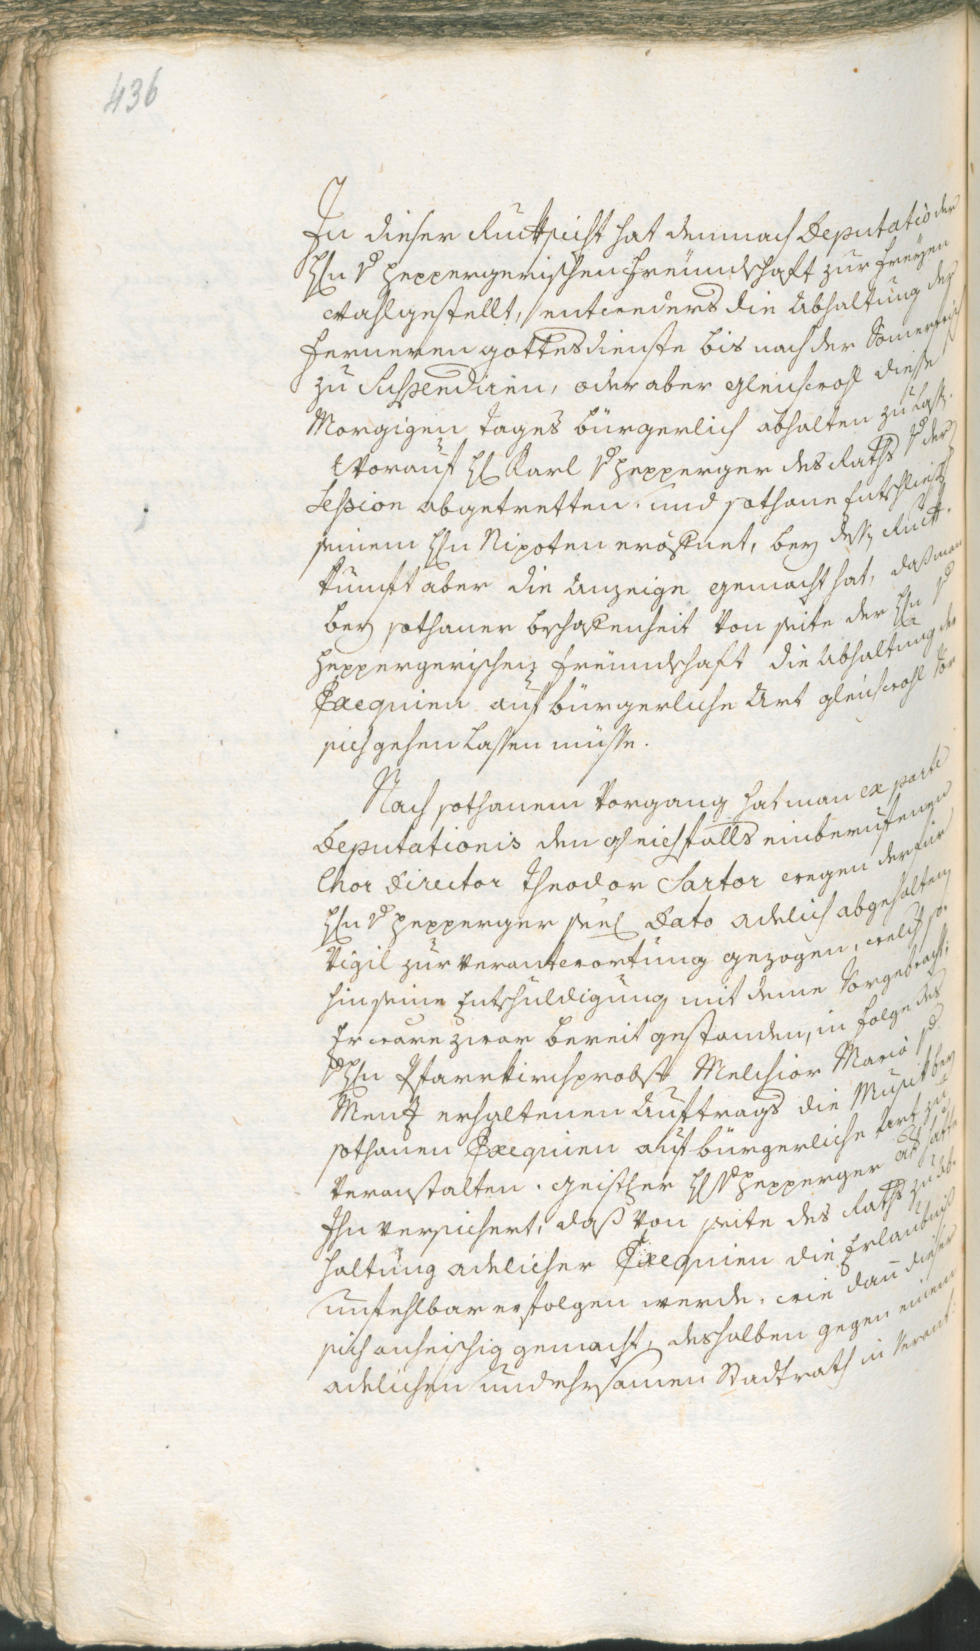 436
In dieser Rucksicht hat demnach Deputatio der
H(er)n v Hepperger(ischen) Freündschaft zur freÿen
wahl gestellt, entweders die Abhaltung der
ferneren gottesdienste bis nach der
zu Suspendiren, oder aber gleichwohl diesse
Morgigen tages bürgerlich abhalten zu lass.
Worauf H. Karl v Hepperger des Raths v der
Session abgetretten, und sothane Entschliess
seinem H(er)n Nipoten eröfnet, beÿ dess Ruck¬
kunft aber die Anzeige gemacht hat, daß man
beÿ sothaner beschafenheit von seite der H(er)n v
Heppergerischen freündschaft die Abhaltung der
Exequien auf bürgerliche Art gleichwohl vor
sich gehen lassen müsse.
Nach sothanem Vorgang hat man ex parte
Deputationis den gleichfalls einberufenen
Chor Director Theodor Sartor wegen der für
H(er)n v Hepperger seel Dato adelich abgehalten
Vigil zur verantwortung gezogen, welch so¬
hin seine Entschuldigung mit deme vorgebracht:
Er ware zwar bereit gestanden, in folge des
H(er)n Pfarrkirchprobst Melchior Maria v
Menz erhaltenen Auftrags die Musick beÿ
sothanen Exequien auf bürgerliche art zu
veranstalten. geistl(ich)er H. v Hepperger hatte
Ihn versichert, daß von seite des Raths zu Ab¬
haltung adelicher Exequien die Erlaubnuß
unfehlbar erfolgen werde, wie dan dieser
sich anheischig gemacht, deshalben gegen einem
adelichen und ehrsamen Stadtrath in verant¬